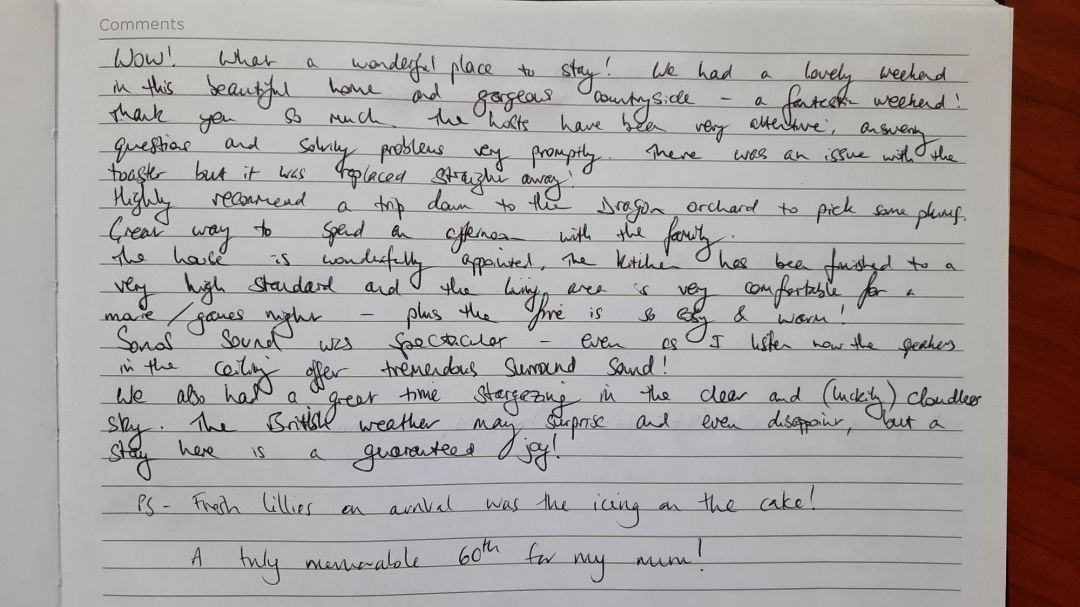 Comments
Wow! What a wonderful place to stay! We had a lovely weekend
in this beautiful home and gorgeous countryside - a fantastic weekend!
Thank you so much. The hosts have been very attentive, answering
questions and solving problems very promptly. There was an issue with the
toaster but it was replaced straight away!
Highly recommend a trip down to the Dragon orchard to pick some plums.
Great way to spend an afternoon with the family.
The house is wonderfully appointed, the kitchen has been finished to a
very high standard and the living area is very comfortable for a
movie/games night - plus the fire is so cosy & warm!
Sonos Sound was spectacular - even as I listen now the speakers
in the ceiling offer tremendous surround sound!
We also had a great time stargazing in the clear and (luckily) cloudless
sky. The British weather may surprise and even disappoint, but a
stay here is a guaranteed joy!
PS - Fresh lillies on arrival was the icing on the cake!
A truly memorable 60th for my mum!